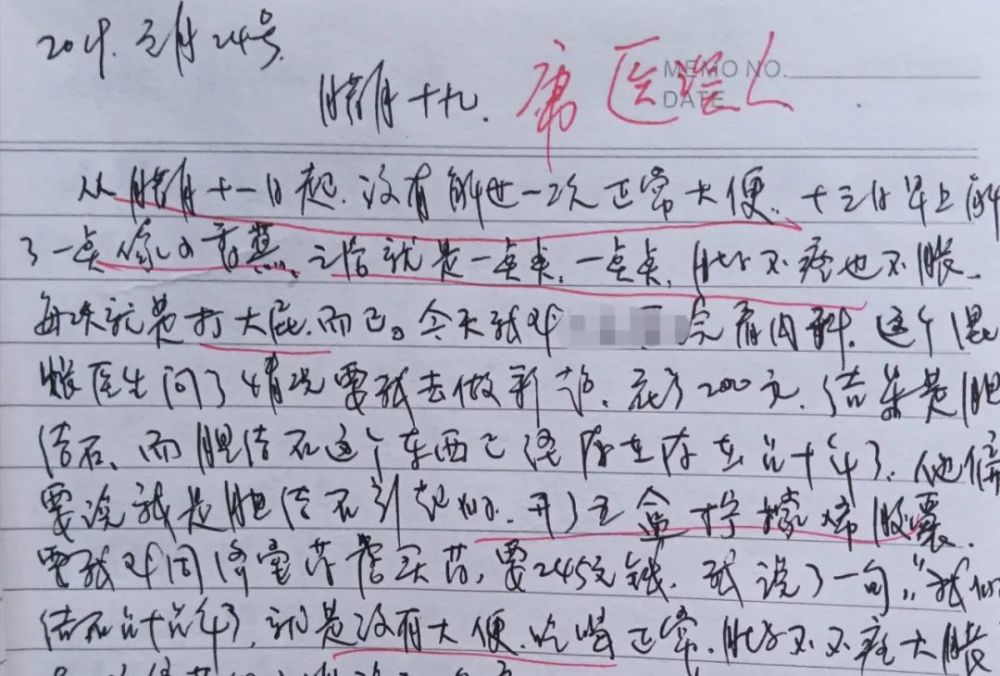 2019.元月24号.
MEMO NO.
DATE
腊月十九.
庸医误人
从腊月十一日起.没有解过一次正常大便.十三日早上解
了一点像以香蕉、之后就是一点点,一点点,肚子不痛也不胀.
每次就是打大屁.而已。今天我到 院看内科.这个混
账医生问了情况要我去做彩超.花了200元.结果是胆
结石、而胆结石这个东西已经存在存在六十年了.他偏
要说就是胆结石引起的.开了五盒柠檬烯胶囊.
要我到同济堂药店买药,要245元钱.我说了一句,"我的
结石六十六年了.就是没有大便.吃喝正常.肚子不不痛大胀